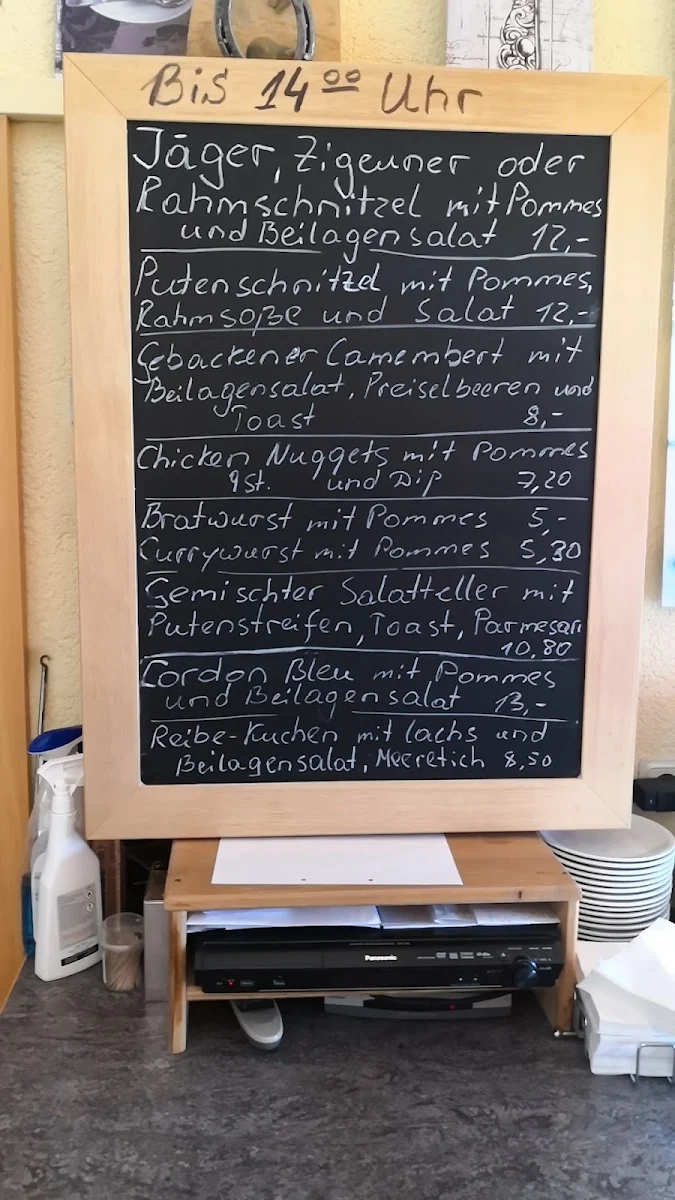 Bis 14⁰⁰ Uhr
Jäger, Zigeuner oder
Rahmschnitzel mit Pommes
und Beilagensalat 12,-
Putenschnitzel mit Pommes,
Rahmsoße und Salat 12,-
Gebackener Camembert mit
Beilagensalat, Preiselbeeren und
Toast 8,-
Chicken Nuggets mit Pommes
9St. und Dip 7,20
Bratwurst mit Pommes 5,-
Currywurst mit Pommes 5,30
Gemischter Salatteller mit
Putenstreifen, Toast, Parmesan
10,80
Cordon Bleu mit Pommes
und Beilagensalat 13,-
Reibe-Kuchen mit lachs und
Beilagensalat, Meeretich 8,50
Panasonic